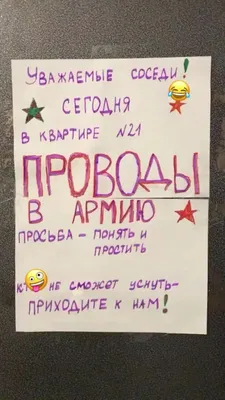 Уважаемые соседи!
сегодня
в квартире №21
ПРОВОДЫ
в армию
просьба – понять и
простить
не сможет уснуть-
приходите к нам!